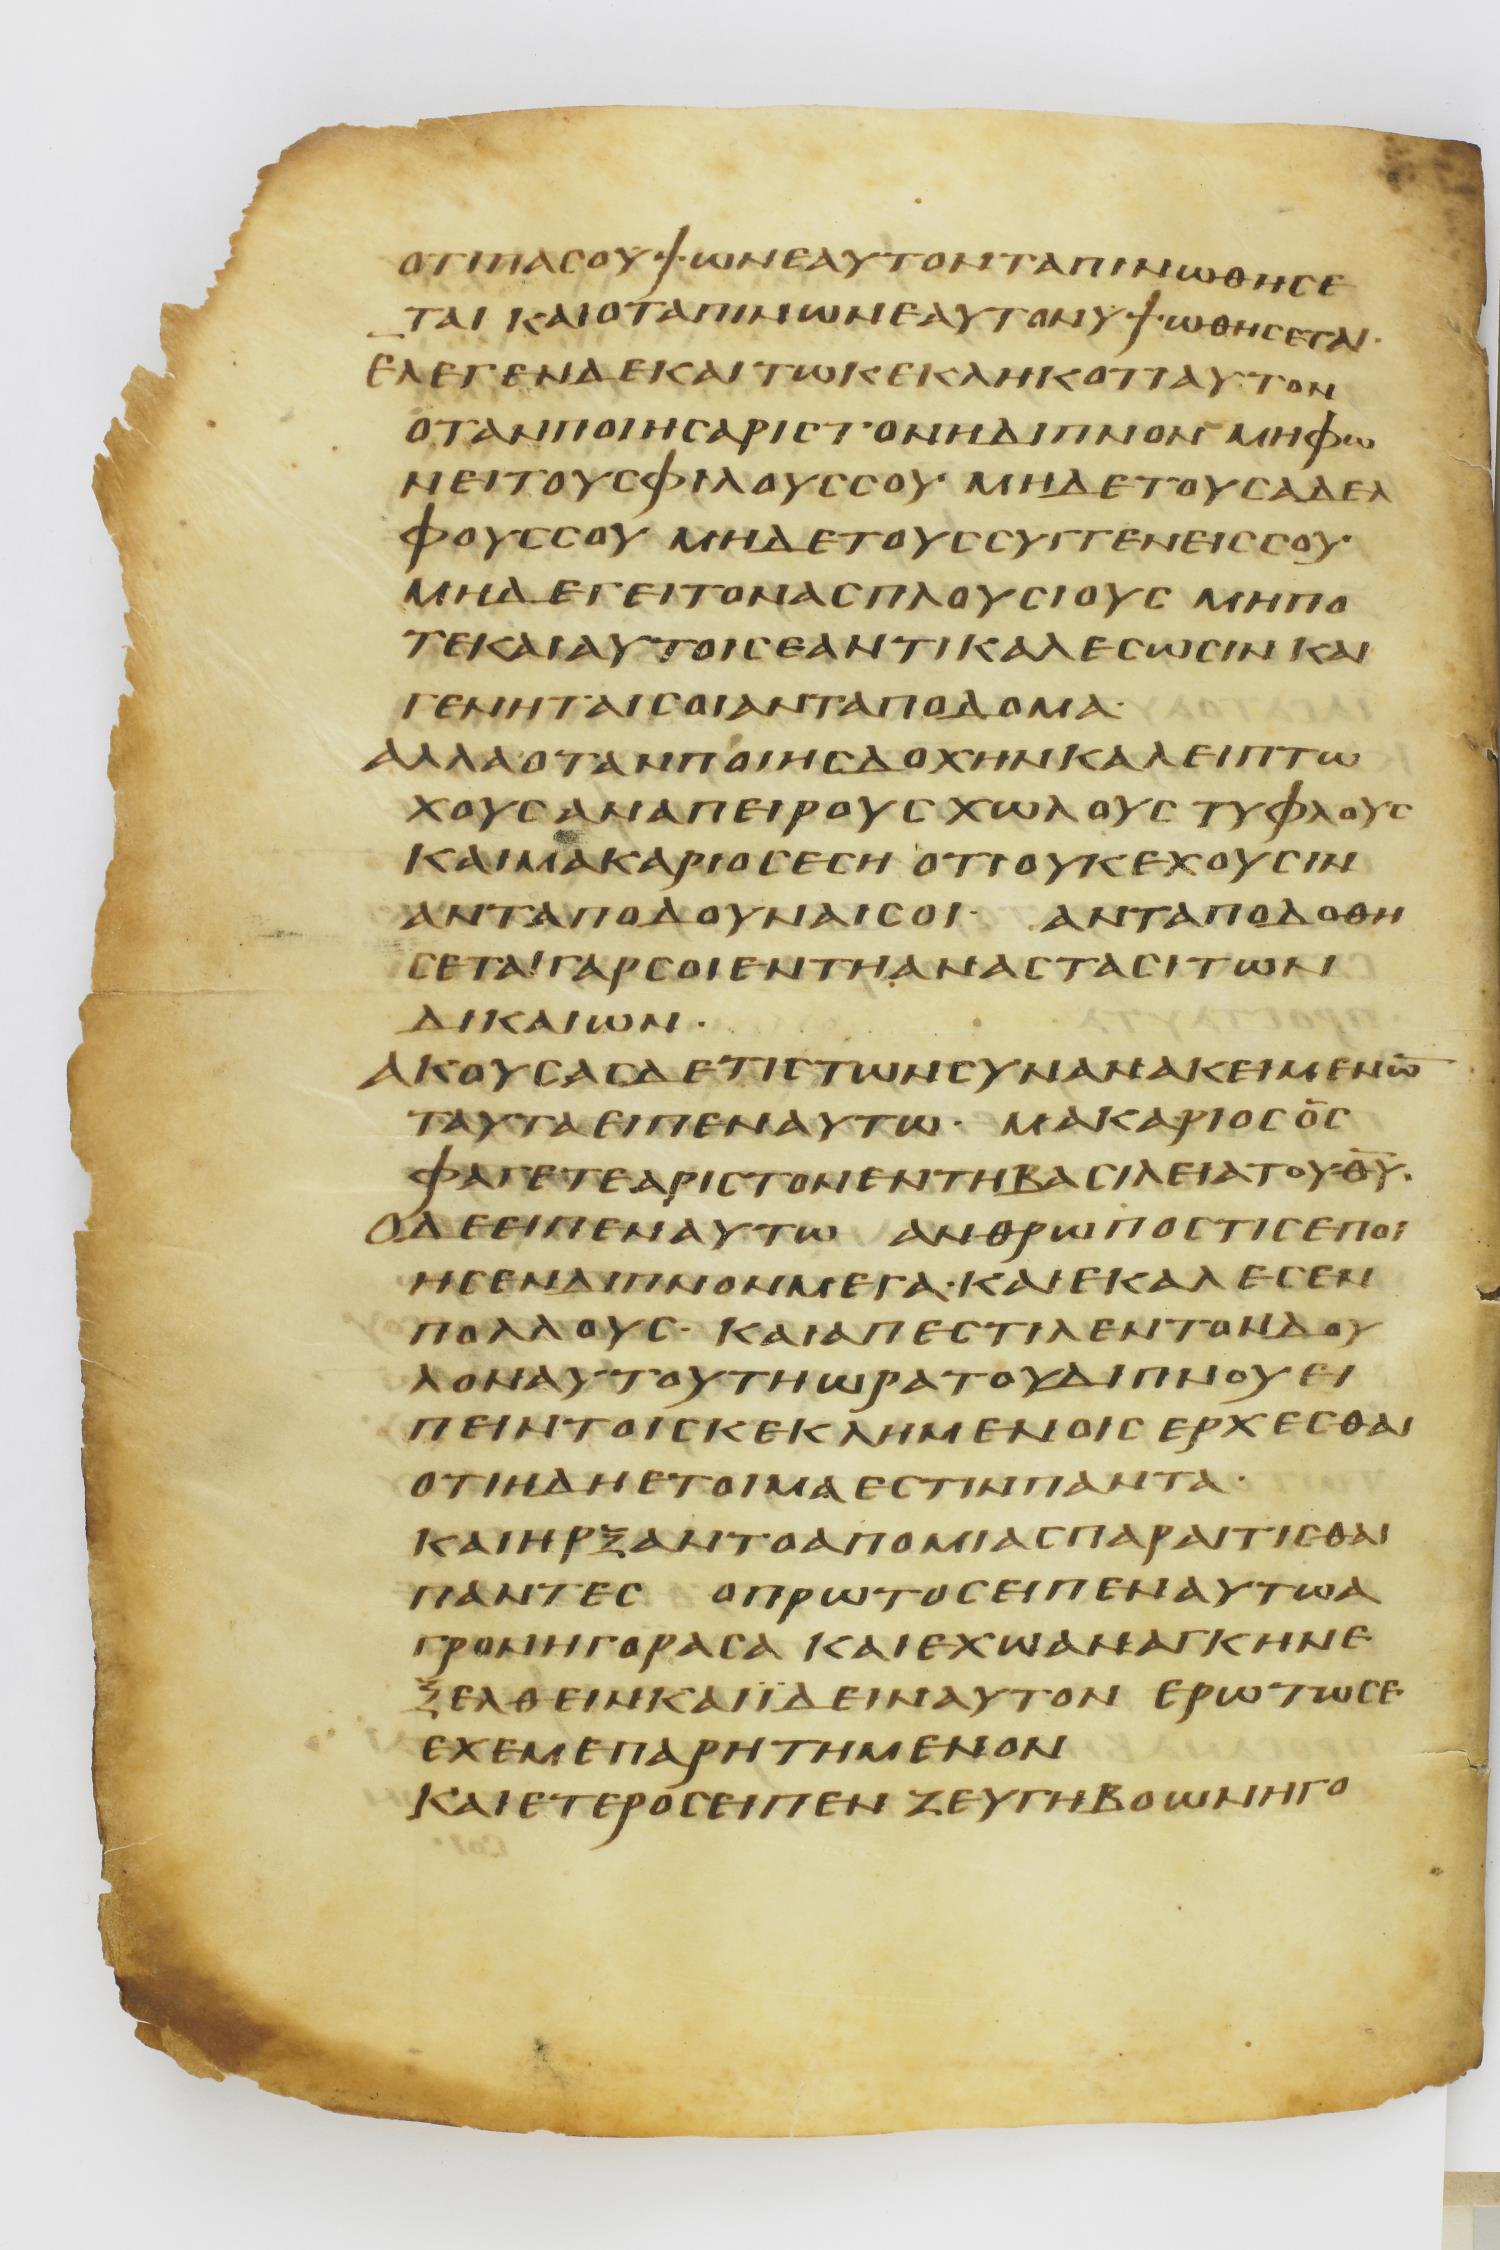 ΟΤΙΠΑСΟΥΨΩΝΕΑΥΤΟΝΤΑΠΙΝΩΘΗСΕ
ΤΑΙ ΚΑΙΟΤΑΠΙΝΩΝΕΑΥΤΟΝΥΨΩΘΗСΕΤΑΙ·
ΕΛΕΓΕΝΔΕΚΑΙΤΩΚΕΚΛΗΚΟΤΙΑΥΤΟΝ
ΟΤΑΝΠΟΙΗСΑΡΙСΤΟΝΗΔΙΠΝΟΝ ΜΗΦΩ
ΝΕΙΤΟΥСΦΙΛΟΥССΟΥ ΜΗΔΕΤΟΥСΑΔΕΛ
ΦΟΥССΟΥ ΜΗΔΕΤΟΥССΥΓΓΕΝΕΙССΟΥ·
ΜΗΔΕΓΕΙΤΟΝΑСΠΛΟΥСΙΟΥС ΜΗΠΟ
ΤΕΚΑΙΑΥΤΟΙСΕΑΝΤΙΚΑΛΕСΩСΙΝ ΚΑΙ
ΓΕΝΗΤΑΙСΟΙΑΝΤΑΠΟΔΟΜΑ·
ΑΛΛΑΟΤΑΝΠΟΙΗСΔΟΧΗΝΚΑΛΕΙΠΤΩ
ΧΟΥСΑΝΑΠΕΙΡΟΥС ΧΩΛΟΥС ΤΥΦΛΟΥС
ΚΑΙΜΑΚΑΡΙΟСΕСΗ ΟΤΙΟΥΚΕΧΟΥСΙΝ
ΑΝΤΑΠΟΔΟΥΝΑΙСΟΙ· ΑΝΤΑΠΟΔΟΘΗ
СΕΤΑΙΓΑΡСΟΙΕΝΤΗΑΝΑСΤΑСΙΤΩΝ
ΔΙΚΑΙΩΝ·
ΑΚΟΥСΑСΔΕΤΙСΤΩΝСΥΝΑΝΑΚΕΙΜΕΝΩ̅
ΤΑΥΤΑΕΙΠΕΝΑΥΤΩ· ΜΑΚΑΡΙΟС ΟС
ΦΑΓΕΤΕΑΡΙСΤΟΝΕΝΤΗΒΑСΙΛΕΙΑΤΟΥΘ̅Υ̅·
ΟΔΕΕΙΠΕΝΑΥΤΩ ΑΝΘΡΩΠΟСΤΙСΕΠΟΙ
ΗСΕΝΔΙΠΝΟΝΜΕΓΑ·ΚΑΙΕΚΑΛΕСΕΝ
ΠΟΛΛΟΥС· ΚΑΙΑΠΕСΤΙΛΕΝΤΟΝΔΟΥ
ΛΟΝΑΥΤΟΥΤΗΩΡΑΤΟΥΔΙΠΝΟΥΕΙ
ΠΕΙΝΤΟΙСΚΕΚΛΗΜΕΝΟΙС ΕΡΧΕСΘΑΙ
ΟΤΙΗΔΗΕΤΟΙΜΑΕСΤΙΝΠΑΝΤΑ·
ΚΑΙΗΡΞΑΝΤΟΑΠΟΜΙΑСΠΑΡΑΙΤΙСΘΑΙ
ΠΑΝΤΕС ΟΠΡΩΤΟСΕΙΠΕΝΑΥΤΩΑ
ΓΡΟΝΗΓΟΡΑСΑ ΚΑΙΕΧΩΑΝΑΓΚΗΝΕ
ΞΕΛΘΕΙΝΚΑΙΪΔΕΙΝΑΥΤΟΝ ΕΡΩΤΩСΕ
ΕΧΕΜΕΠΑΡΗΤΗΜΕΝΟΝ
ΚΑΙΕΤΕΡΟСΕΙΠΕΝ ΖΕΥΓΗΒΟΩΝΗΓΟ